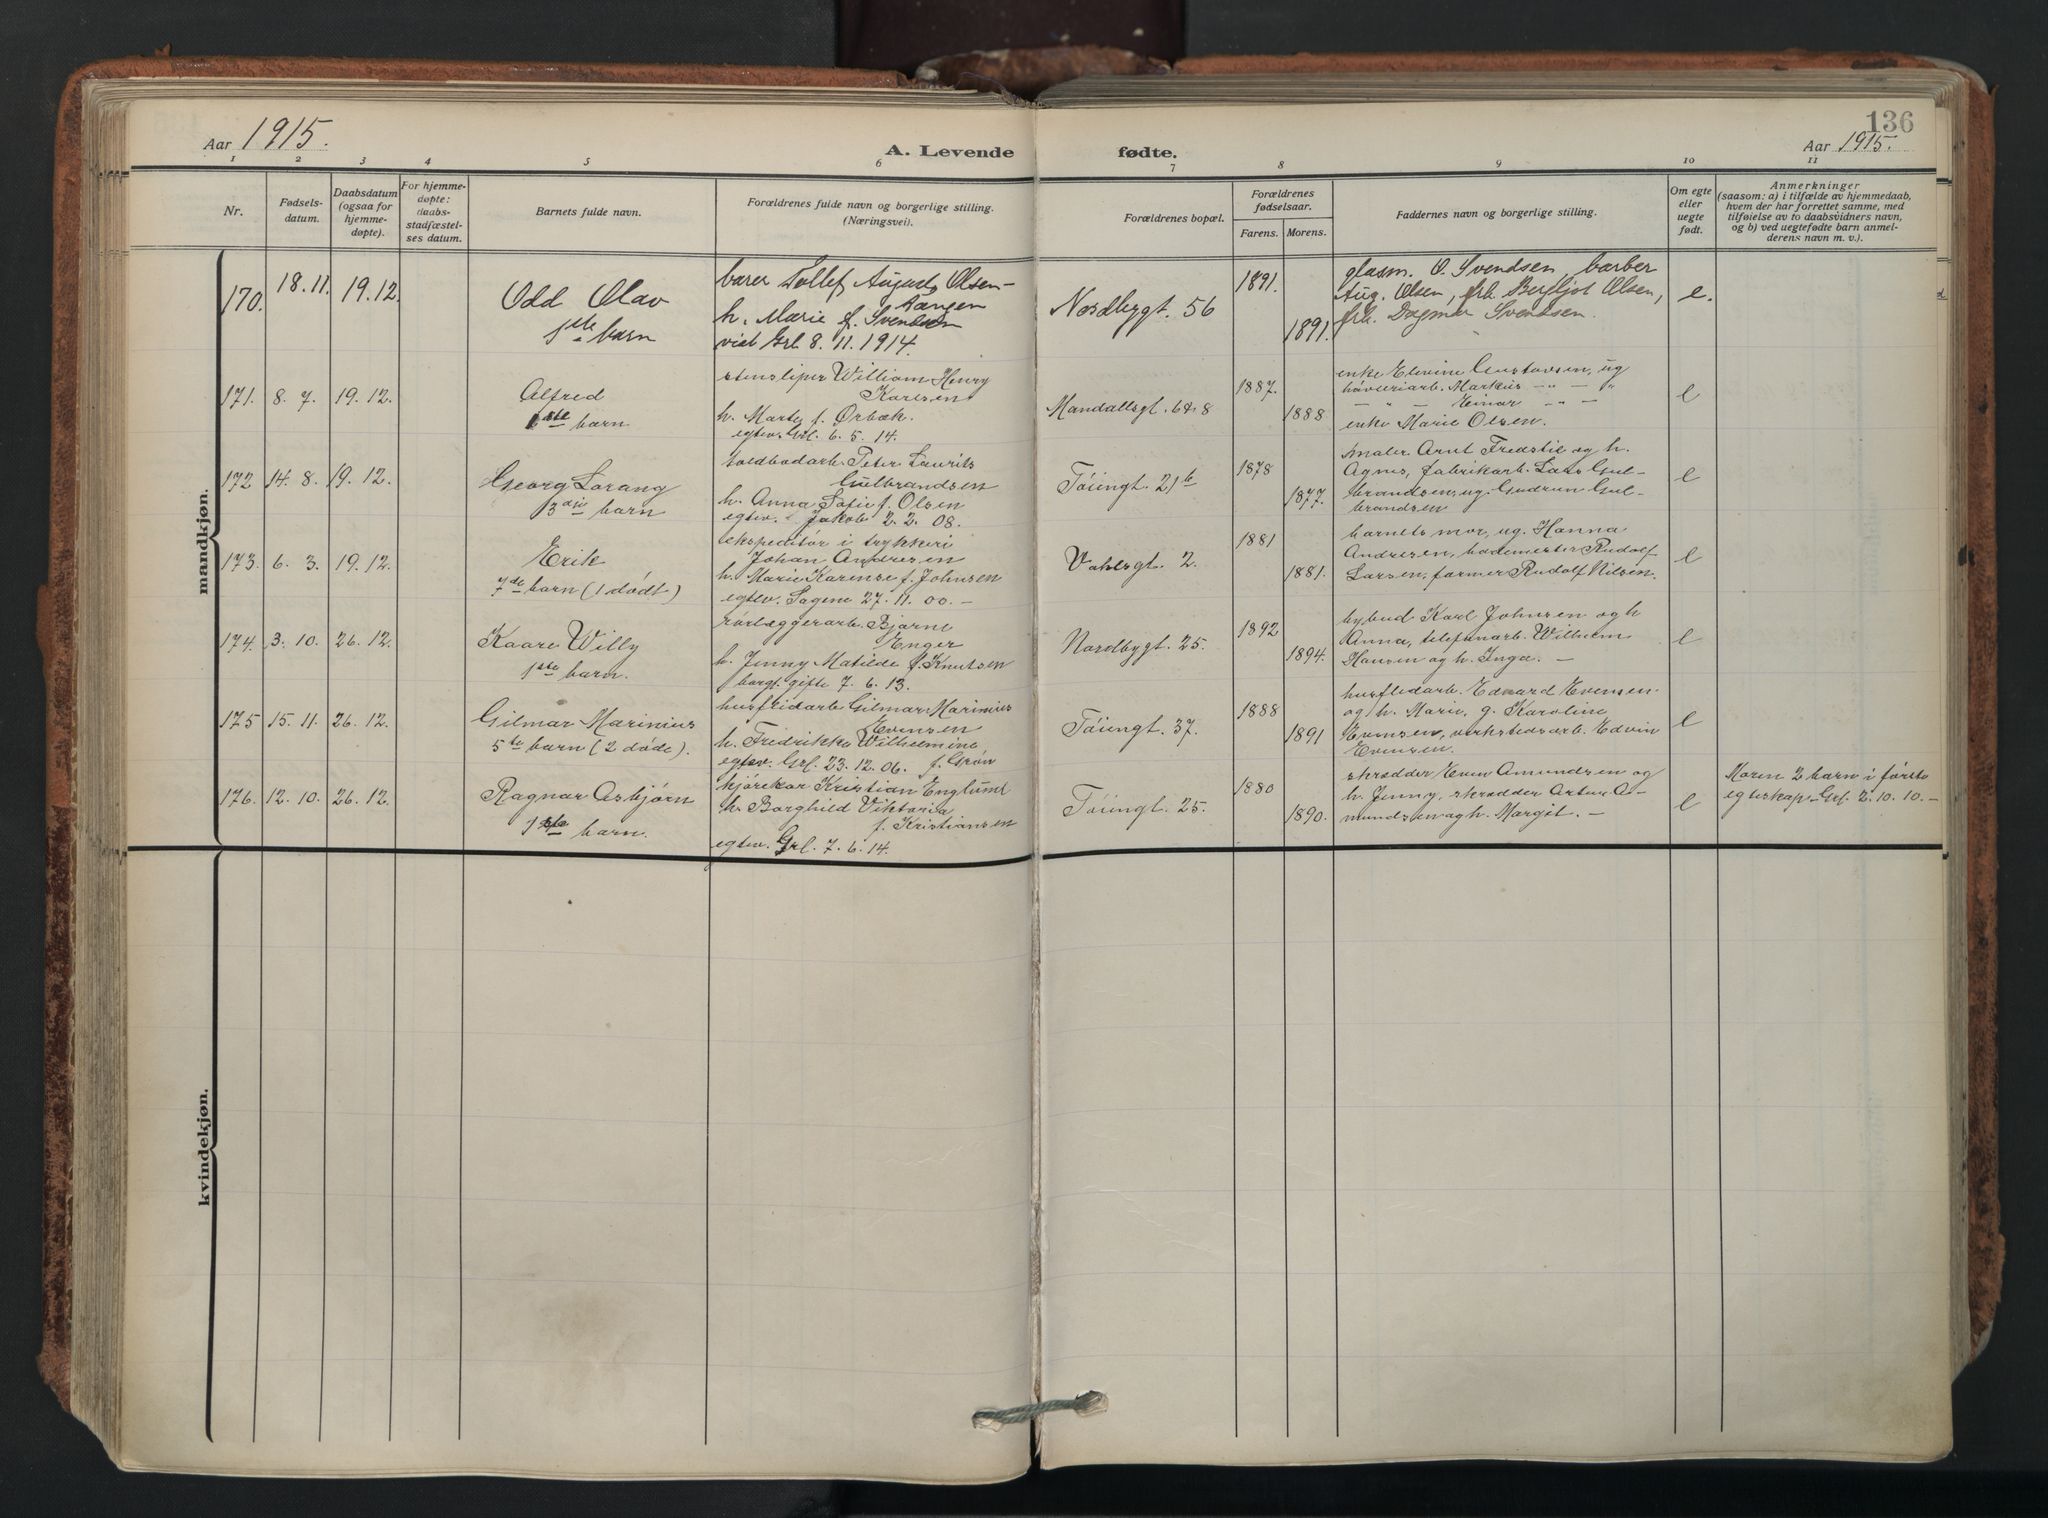 136
Aar 1915.
A. Levende fødte.
Aar 1915.
1 2 3 4 5 6 7 8 9 10 11
Nr.
Fødsels-
datum.
Daabsdatum
(ogsaa for
hjemme-
døpte).
For hjemme-
døpte:
daabs-
stadfæstel-
ses datum.
Barnets fulde navn.
Forældrenes fulde navn og borgerlige stilling.
(Næringsvei).
Forældrenes bopæl.
Forældrenes
fødselsaar.
Farens. Morens.
Faddernes navn og borgerlige stilling.
Om egte
eller
uegte
født.
Anmerkninger
(saasom: a) i tilfælde av hjemmedaab,
hvem der har forrettet samme, med
tilføielse av to daabsvidners navn,
og b) ved uegtefødte barn anmel-
derens navn m. v.).
mandkjøn.
170. 18. 11. 19. 12.
Odd Olav
1ste barn
August Olsen-
Aangen
h. Marie f. Svendsen
viet Grl. 8. 11. 1914.
Nordbygt. 56
1891.
1891.
glasm. O. Svendsen, barber
Aug. Olsen, frk. Bergljot Olsen,
frk. Dagmar Svendsen.
e.
171. 8. 7. 19. 12.
Alfred
1ste barn
stensliper William Henry
Karlsen
h. Marte f. Ørbæk
egtev. Grl. 6. 5. 14.
Mandallsgt. 6 & 8
1887.
1888
enke Elevine Gustavsen, ug
Markus -"- - "
- " - Einar -"- -
enke Marie Olsen.
e
172 14. 8. 19. 12.
Georg Lorang
3die barn
toldbodarb. Peter Laurits
Gulbrandsen
h. Anna Sofie f. Olsen
egtev. Jakob 2. 2. 08.
Töiengt. 21b
1878
1877.
maler Arnt Fredstie og h.
Agnes, fabrikarb. Lars Gul-
brandsen, ug. Gudrun Gul-
brandsen
e
173. 6. 3. 19. 12.
Erik
7de barn (1 dödt)
ekspeditör i trykkeri
Johan Andresen
h. Marie Karense f. Johnsen
egtev. Sagene 27. 11. 00. -
Vahlsgt. 2.
1881
1881.
barnets mor, ug. Hanna
Andresen, bademester Rudolf
Larsen, former Rudolf Nilsen.
e
174. 3. 10. 26. 12.
Kaare Willy
1ste barn.
rörlæggerarb. Bjarne
Enger
h. Jenny Matilde f. Knutsen
borgl. gifte 7. 6. 13.
Nordbygt. 25.
1892
1894.
bybud Karl Johnsen og h
Anna, telefonarb. Wilhelm
Hansen og h. Inga. -
e
175 15. 11. 26. 12.
Gilmar Marinius
5te barn (2 döde).
husflidarb. Gilmar Marinius
Evensen
h. Fredrikke Wilhelmine,
egtev. Grl. 23. 12. 06. f. Grön
Töiengt. 37.
1888
1891
husflidarb. Edvard Evensen
og h. Marie, g. Karoline
Evensen, verkstedsarb. Edvin
Evensen.
e
176. 12. 10. 26. 12.
Ragnar Asbjörn
1ste barn.
kjörekar Kristian Englund
h. Borghild Viktoria
f. Kristiansen
egtev. Grl. 7. 6. 14.
Töiengt. 25.
1880
1890.
skrædder Even Amundsen og
h. Jenny, skrædder Artur A-
mundsen og h. Margit. -
e
Moren 2 barn i förste
egteskap. Grl. 2. 10. 10. -
kvindekjøn.